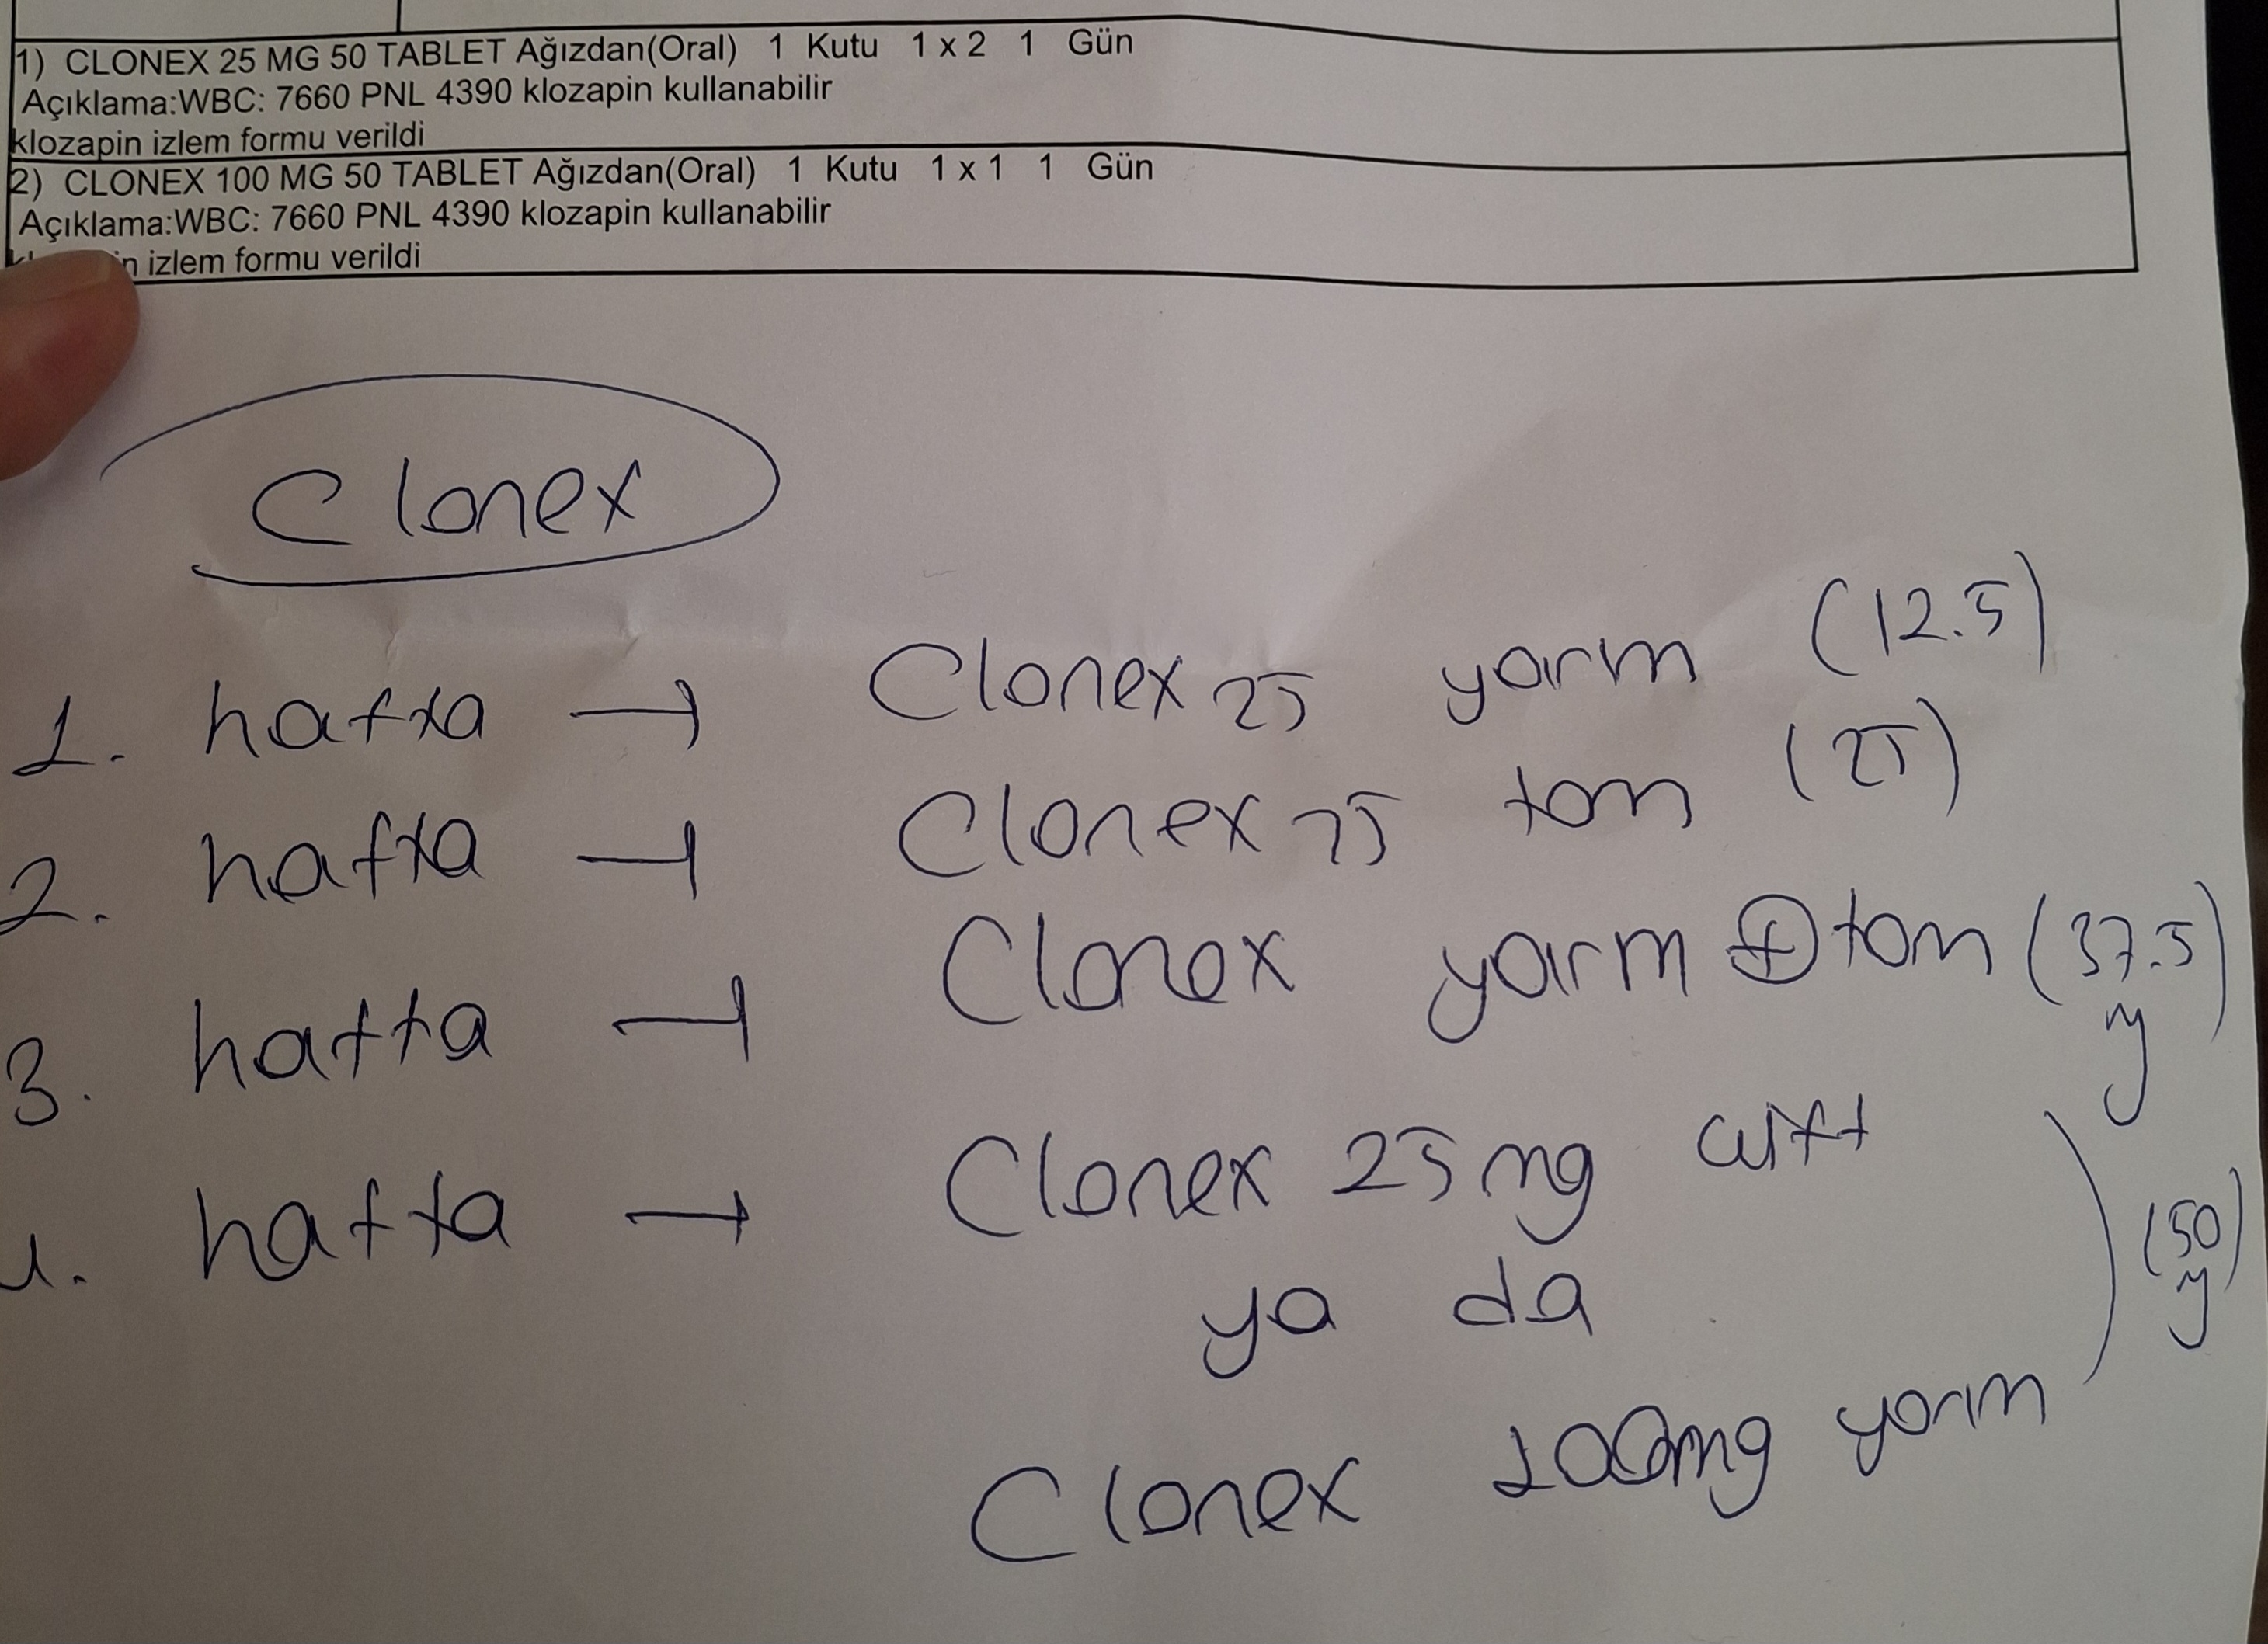 1) CLONEX 25 MG 50 TABLET Ağızdan(Oral) 1 Kutu 1 x 2 1 Gün
Açıklama:WBC: 7660 PNL 4390 klozapin kullanabilir
klozapin izlem formu verildi
2) CLONEX 100 MG 50 TABLET Ağızdan(Oral) 1 Kutu 1 x 1 1 Gün
Açıklama:WBC: 7660 PNL 4390 klozapin kullanabilir
izlem formu verildi
Clonex
1. hafta → Clonex 25 yarım (12.5)
2. hafta → Clonex 25 tam (25)
3. hafta → Clonex yarım + tam (37.5)
4. hafta → Clonex 25 mg çift
ya da (50)
Clonex 100mg yarım